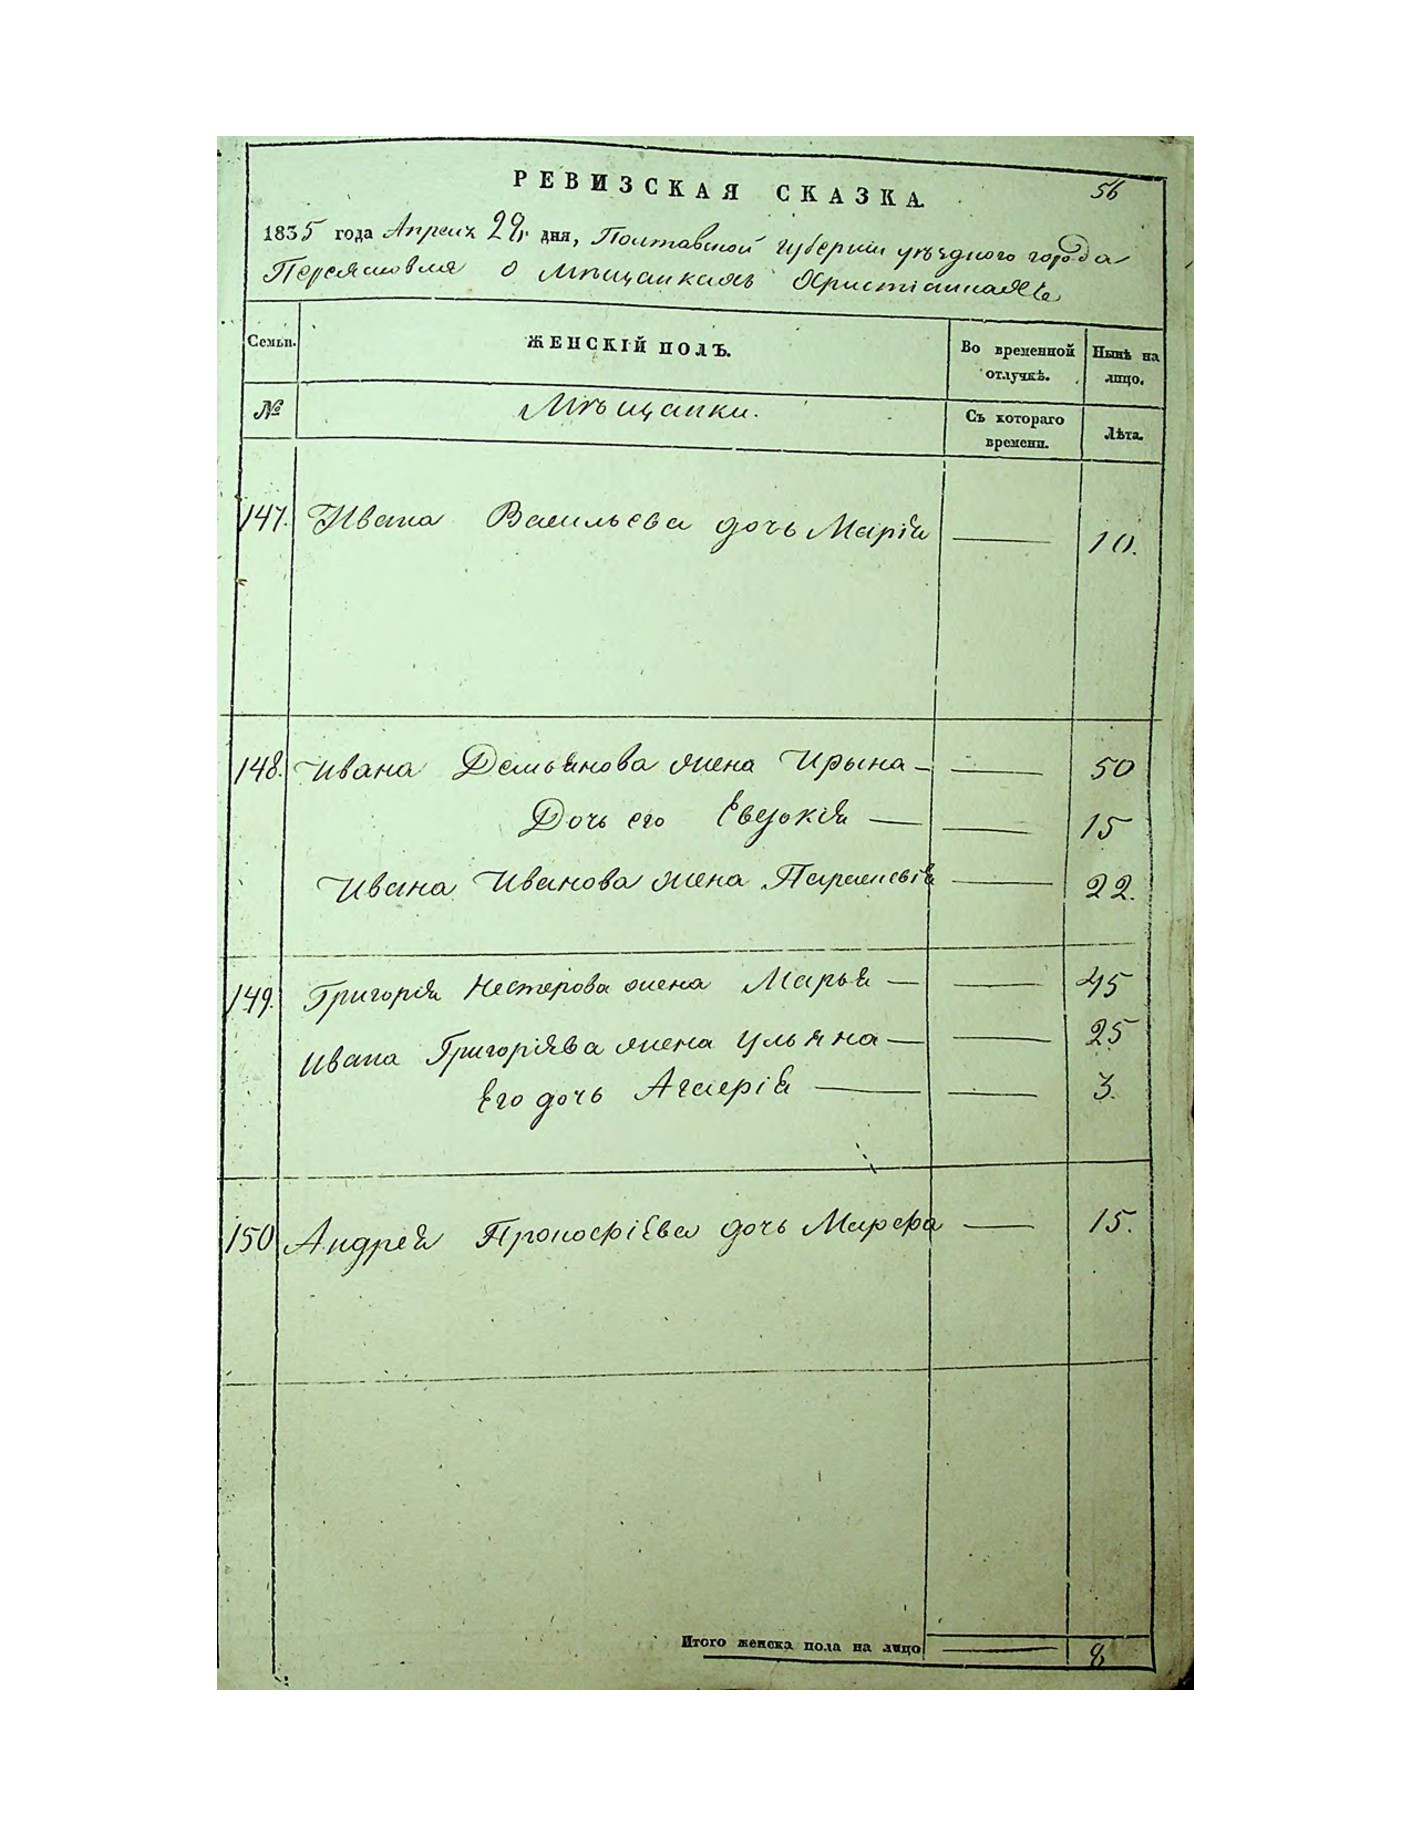 56
РЕВИЗСКАЯ СКАЗКА.
1835 года Апреля 29 дня, Полтавской губернии уѣздного города
Переяславля о мѣщанкахъ Христіанахъ
Семьи. ЖЕНСКІЙ ПОЛЪ. Во временной отлучкѣ. Нынѣ на лицо.
№ Мѣщанки. Съ котораго времени. Лѣта.
147. Ивана Васильева дочь Марія — 10.
148. Ивана Демьянова жена Ирына — — 50
Дочь его Евдокія — — 15
Ивана Иванова жена Параскевія — 22.
149. Григорія Нестерова жена Марья — — 45
Ивана Григоріева жена Ульяна — — 25
Его дочь — — 3.
150 Андрея Прокофіева дочь Марфа — 15.
Итого женска пола на лицо — 8